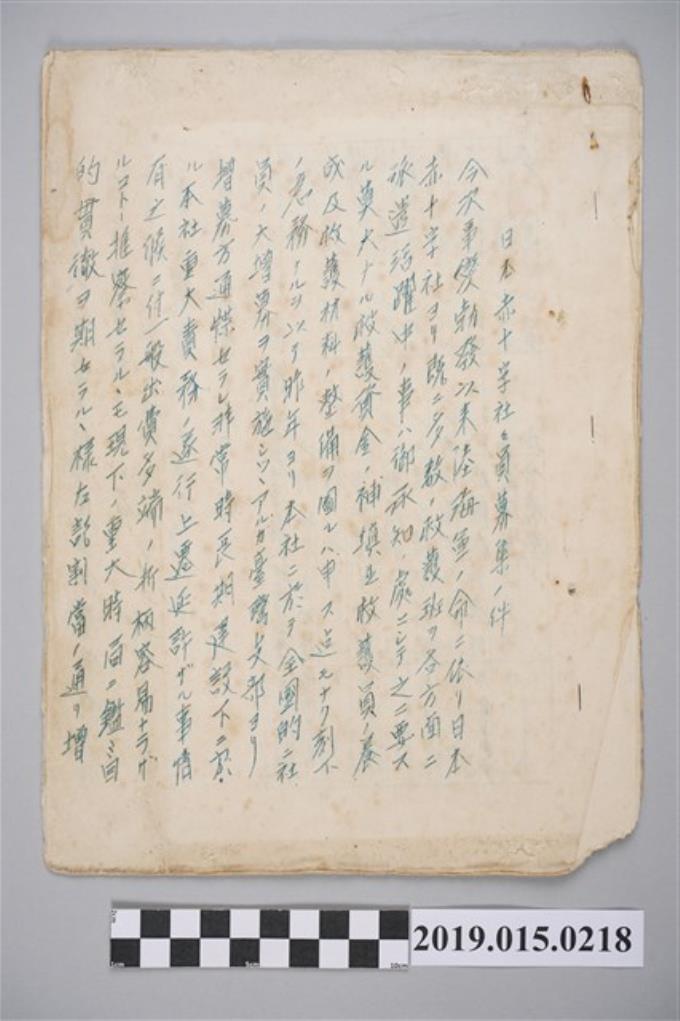 日本赤十字社々員募集ノ件
今次事変勃發以来陸海軍ノ命ニ依リ日本
赤十字社ヨリ既ニ多数ノ救護班ヲ各方面ニ
派遣活躍中ノ事ハ御承知ノ處ニシテ之ニ要ス
ル莫大ナル救護資金ノ補填並救護員ノ養
成及救護材料ノ整備ヲ圖ルハ申ス迄モナク刻下
ノ急務ナルヲ以テ昨年ヨリ本社ニ於テ全國的ニ社
員ノ大増募ヲ實施シツヽアルガ臺灣支部ヨリ
増募方通牒セラレ非常時長期建設下ニ於ケ
ル本社重大責務ノ遂行上遷延許サヾル事情
有之候ニ付一般出費多端ノ折柄容易ナラザ
ルコト推察セラルヽモ現下ノ重大時局ニ鑑ミ目
的貫徹ヲ期セラルヽ様左記割當ノ通リ増
2019.015.0218
1cm
5cm
10cm